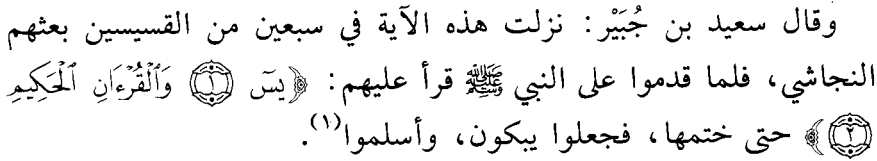 وقال سعيد بن جُبَيْر: نزلت هذه الآية في سبعين من القسيسين بعثهم
النجاشي، فلما قدموا على النبي ﷺ قرأ عليهم: ﴿يسٓ ۝١ وَٱلۡقُرۡءَانِ ٱلۡحَكِيمِ
۝٢﴾ حتى ختمها، فجعلوا يبكون، وأسلموا(١).